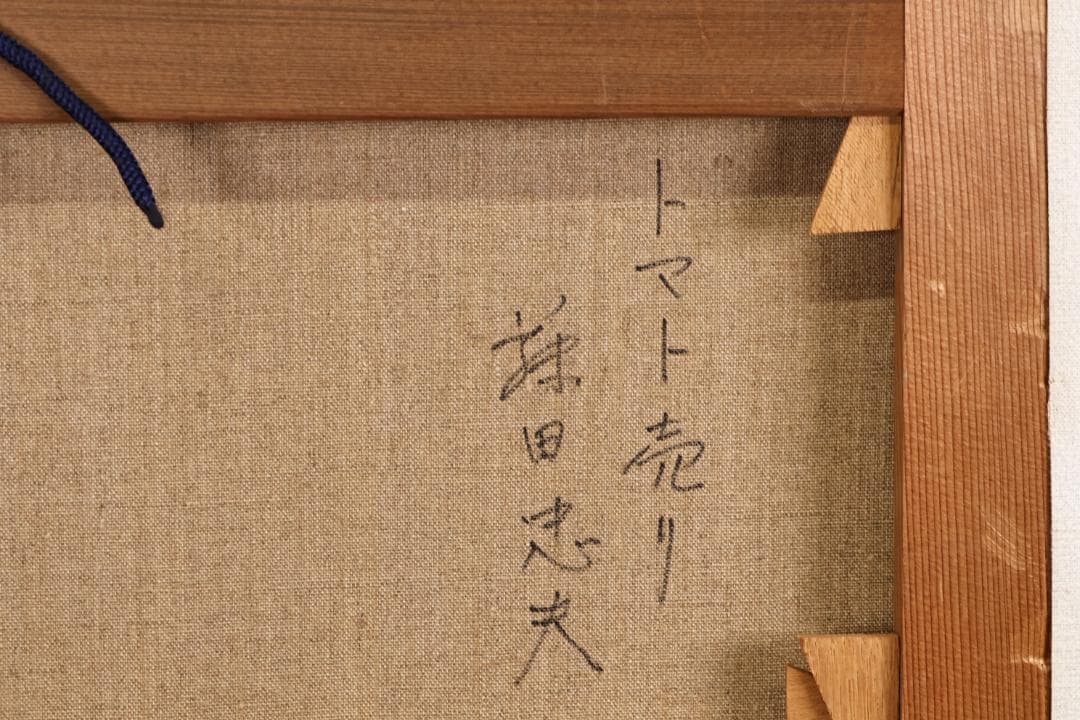 トマト売り
藤田忠夫